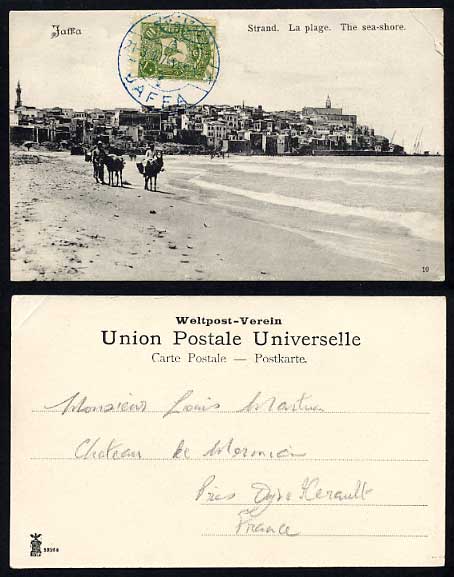 Jaffa
Strand. La plage. The sea-shore.
JAFFA
10
Weltpost-Verein
Union Postale Universelle
Carte Postale — Postkarte.
Monsieur Louis Martin
Chateau de
Près Herault
France